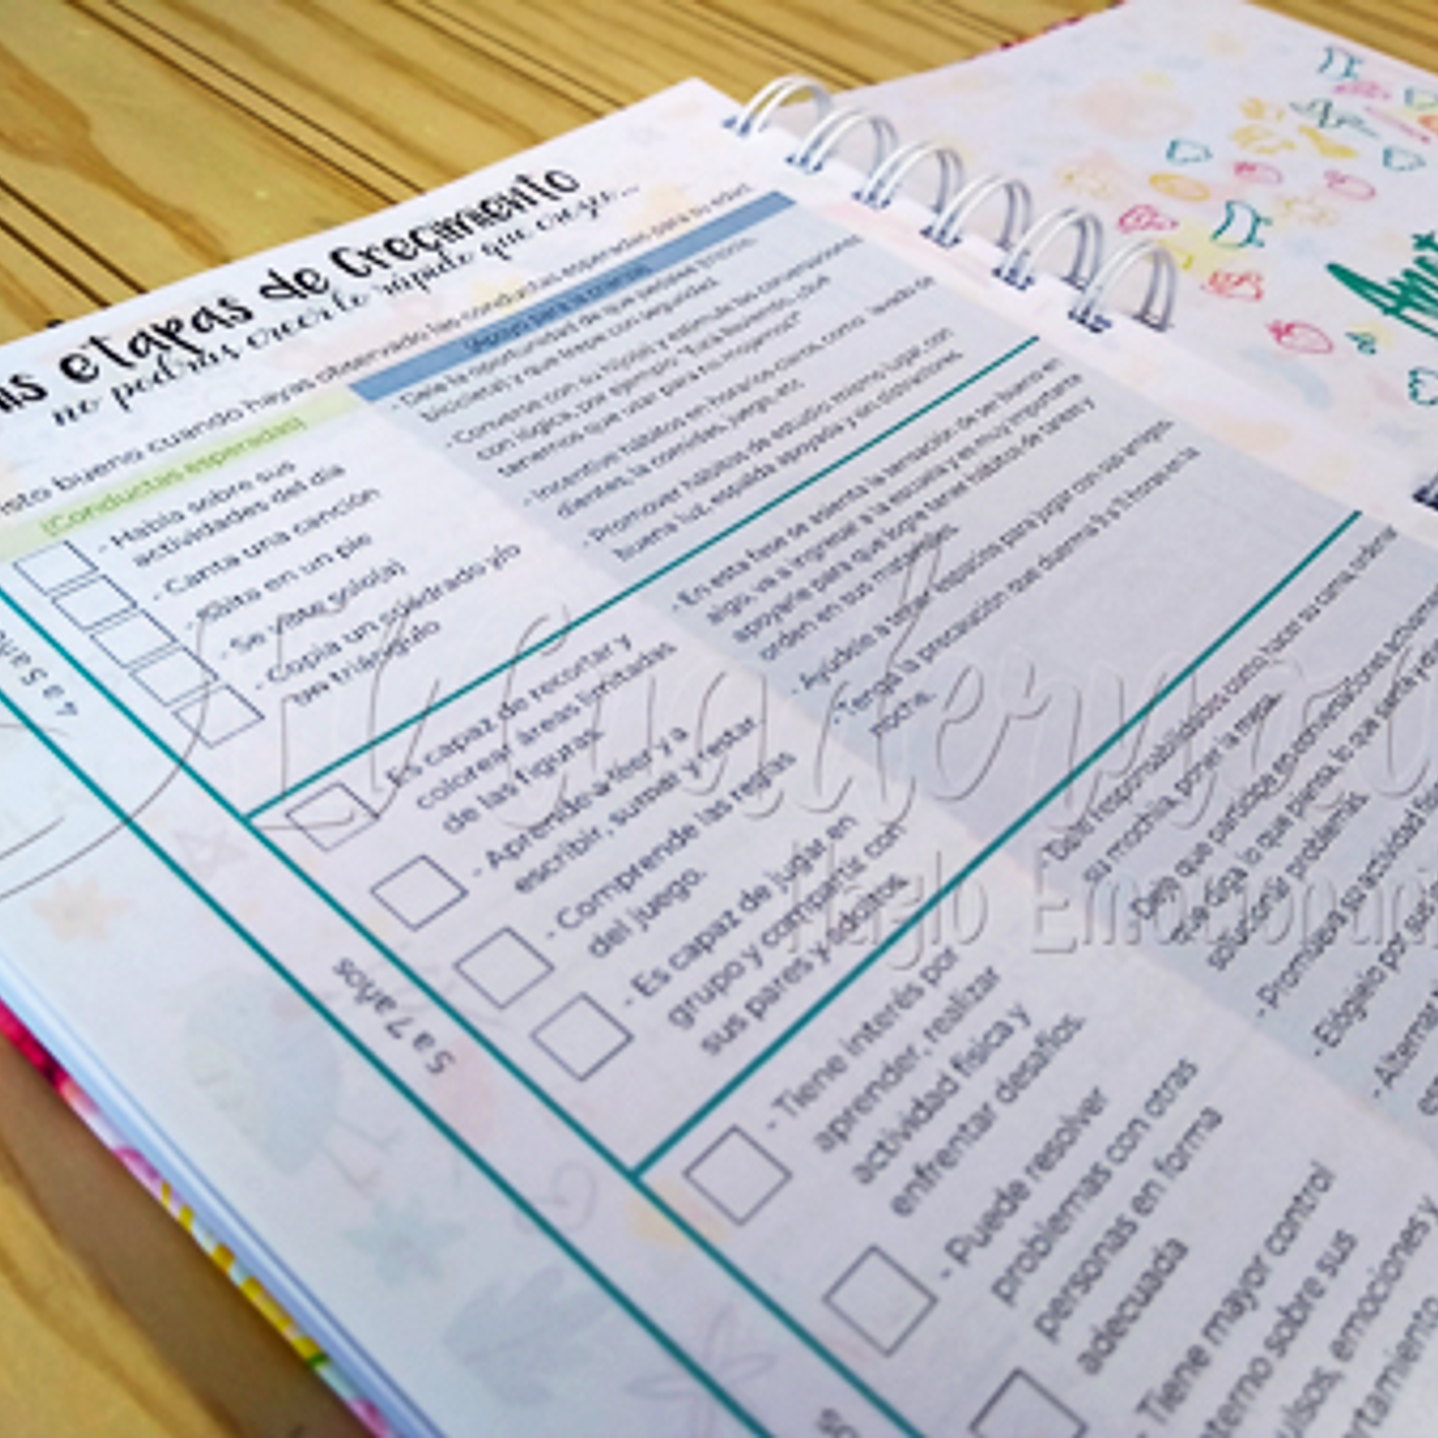 as etapas de Crecimiento
no podrás creer lo rápido que crezco...
isto bueno cuando hayas observado las conductas esperadas para tu edad.
(Conductas esperadas)
- Habla sobre sus
actividades del día
- Canta una canción
- Salta en un pie
- Se viste solo(a)
- Copia un cuadrado y/o
un triángulo
4 a 5 años
- Dele la oportunidad de que pedalee triciclo,
bicicleta) y que trepe con seguridad.
- Converse con su hijo(a) y estimule las conversaciones
con lógica, por ejemplo "Está lloviendo, ¿qué
tenemos que usar para no mojarnos?"
- Incentive hábitos en horarios claros, como: lavado de
dientes, la comidas, juego, etc
- Promover hábitos de estudio mismo lugar, con
buena luz, espalda apoyada y sin distractores.
- Es capaz de recortar y
colorear áreas limitadas
de las figuras.
- Aprende a leer y a
escribir, sumar y restar.
- Comprende las reglas
del juego.
- Es capaz de jugar en
grupo y compartir con
sus pares y adultos.
5 a 7 años
- En esta fase se asienta la sensación de ser bueno en
algo, va a ingresar a la escuela y es muy importante
apoyarle para que logre tener hábitos de tareas y
orden en sus materiales.
- Ayúdele a tener espacios para jugar con sus amigos.
- Tenga la precaución que duerma 9 a 11 horas en la
noche.
- Tiene interés por
aprender, realizar
actividad física y
enfrentar desafíos.
- Puede resolver
problemas con otras
personas en forma
adecuada
- Tiene mayor control
terno sobre sus
ulsos, emociones y
rtamiento
- Dele responsabilidades como hacer su cama, ordenar
su mochila, poner la mesa.
- Deje que participe en conversaciones
que diga lo que piensa, lo que
solucionar problemas.
- Promueva su actividad
- Elógielo por sus
- Alternar
Mi Cuaderno
Hazlo Emocional